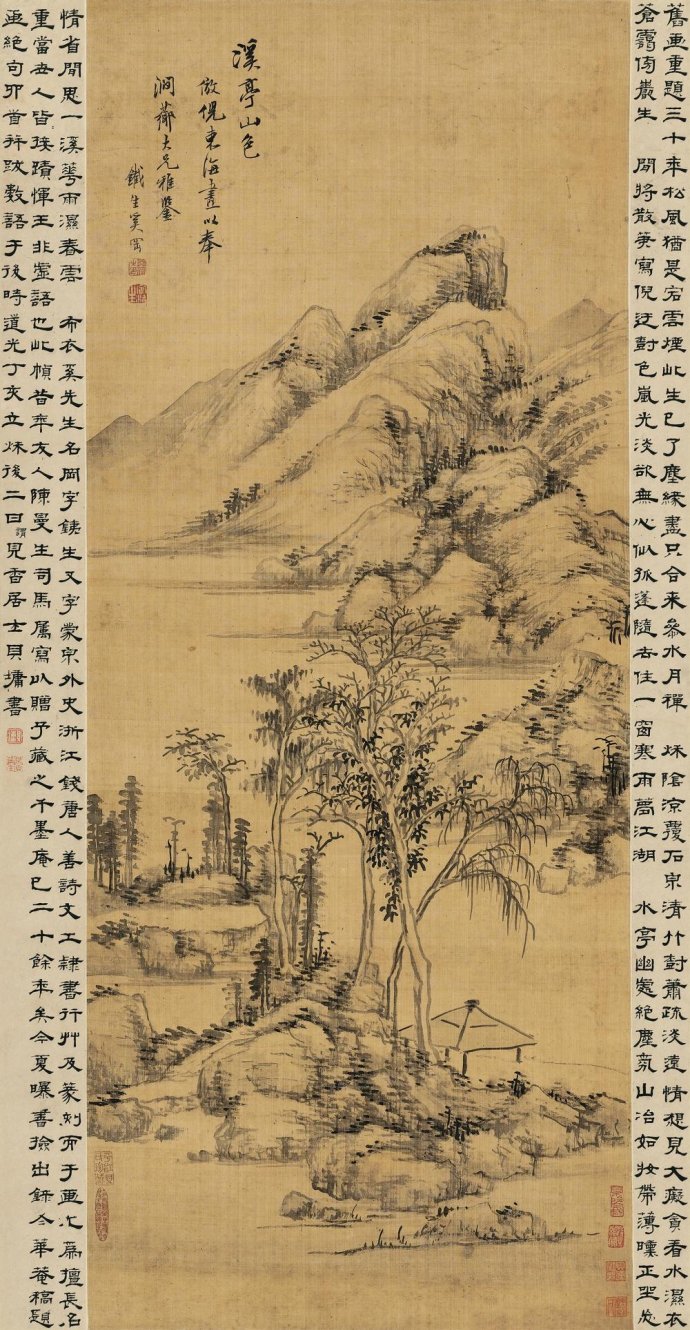 溪亭山色
倣倪東海畫以奉
澗薌大兄雅鑒
鐵生奚岡
舊画重題三十年松風猶是宿雲煙此生已了塵緣盡只合来參水月禪 秌陰涼覆石泉清竹樹蕭疏淡遠情想見大癡貪看水濕衣
蒼靄傍巖生 閒將散筆寫倪迂樹色嵐光淡欲無心似孤蓬隨去住一窗寒雨夢江湖 水亭幽處絶塵氛山冶如妝帶薄曛正坐忘
情省聞思一溪花雨濕春雲 布衣奚先生名岡字鐵生又字蒙泉外史浙江錢唐人善詩文工隸書行艸及篆刻而于画尤爲擅長名
重當世人皆接蹟惲王非虛語也此幀昔年友人陳曼生司馬属寫以贈予藏之千墨庵已二十餘年矣今夏曝書撿出錄今華菴稿題
画絶句卯首并跋數語于後時道光丁亥立秌後二日謂見香居士貝墉書